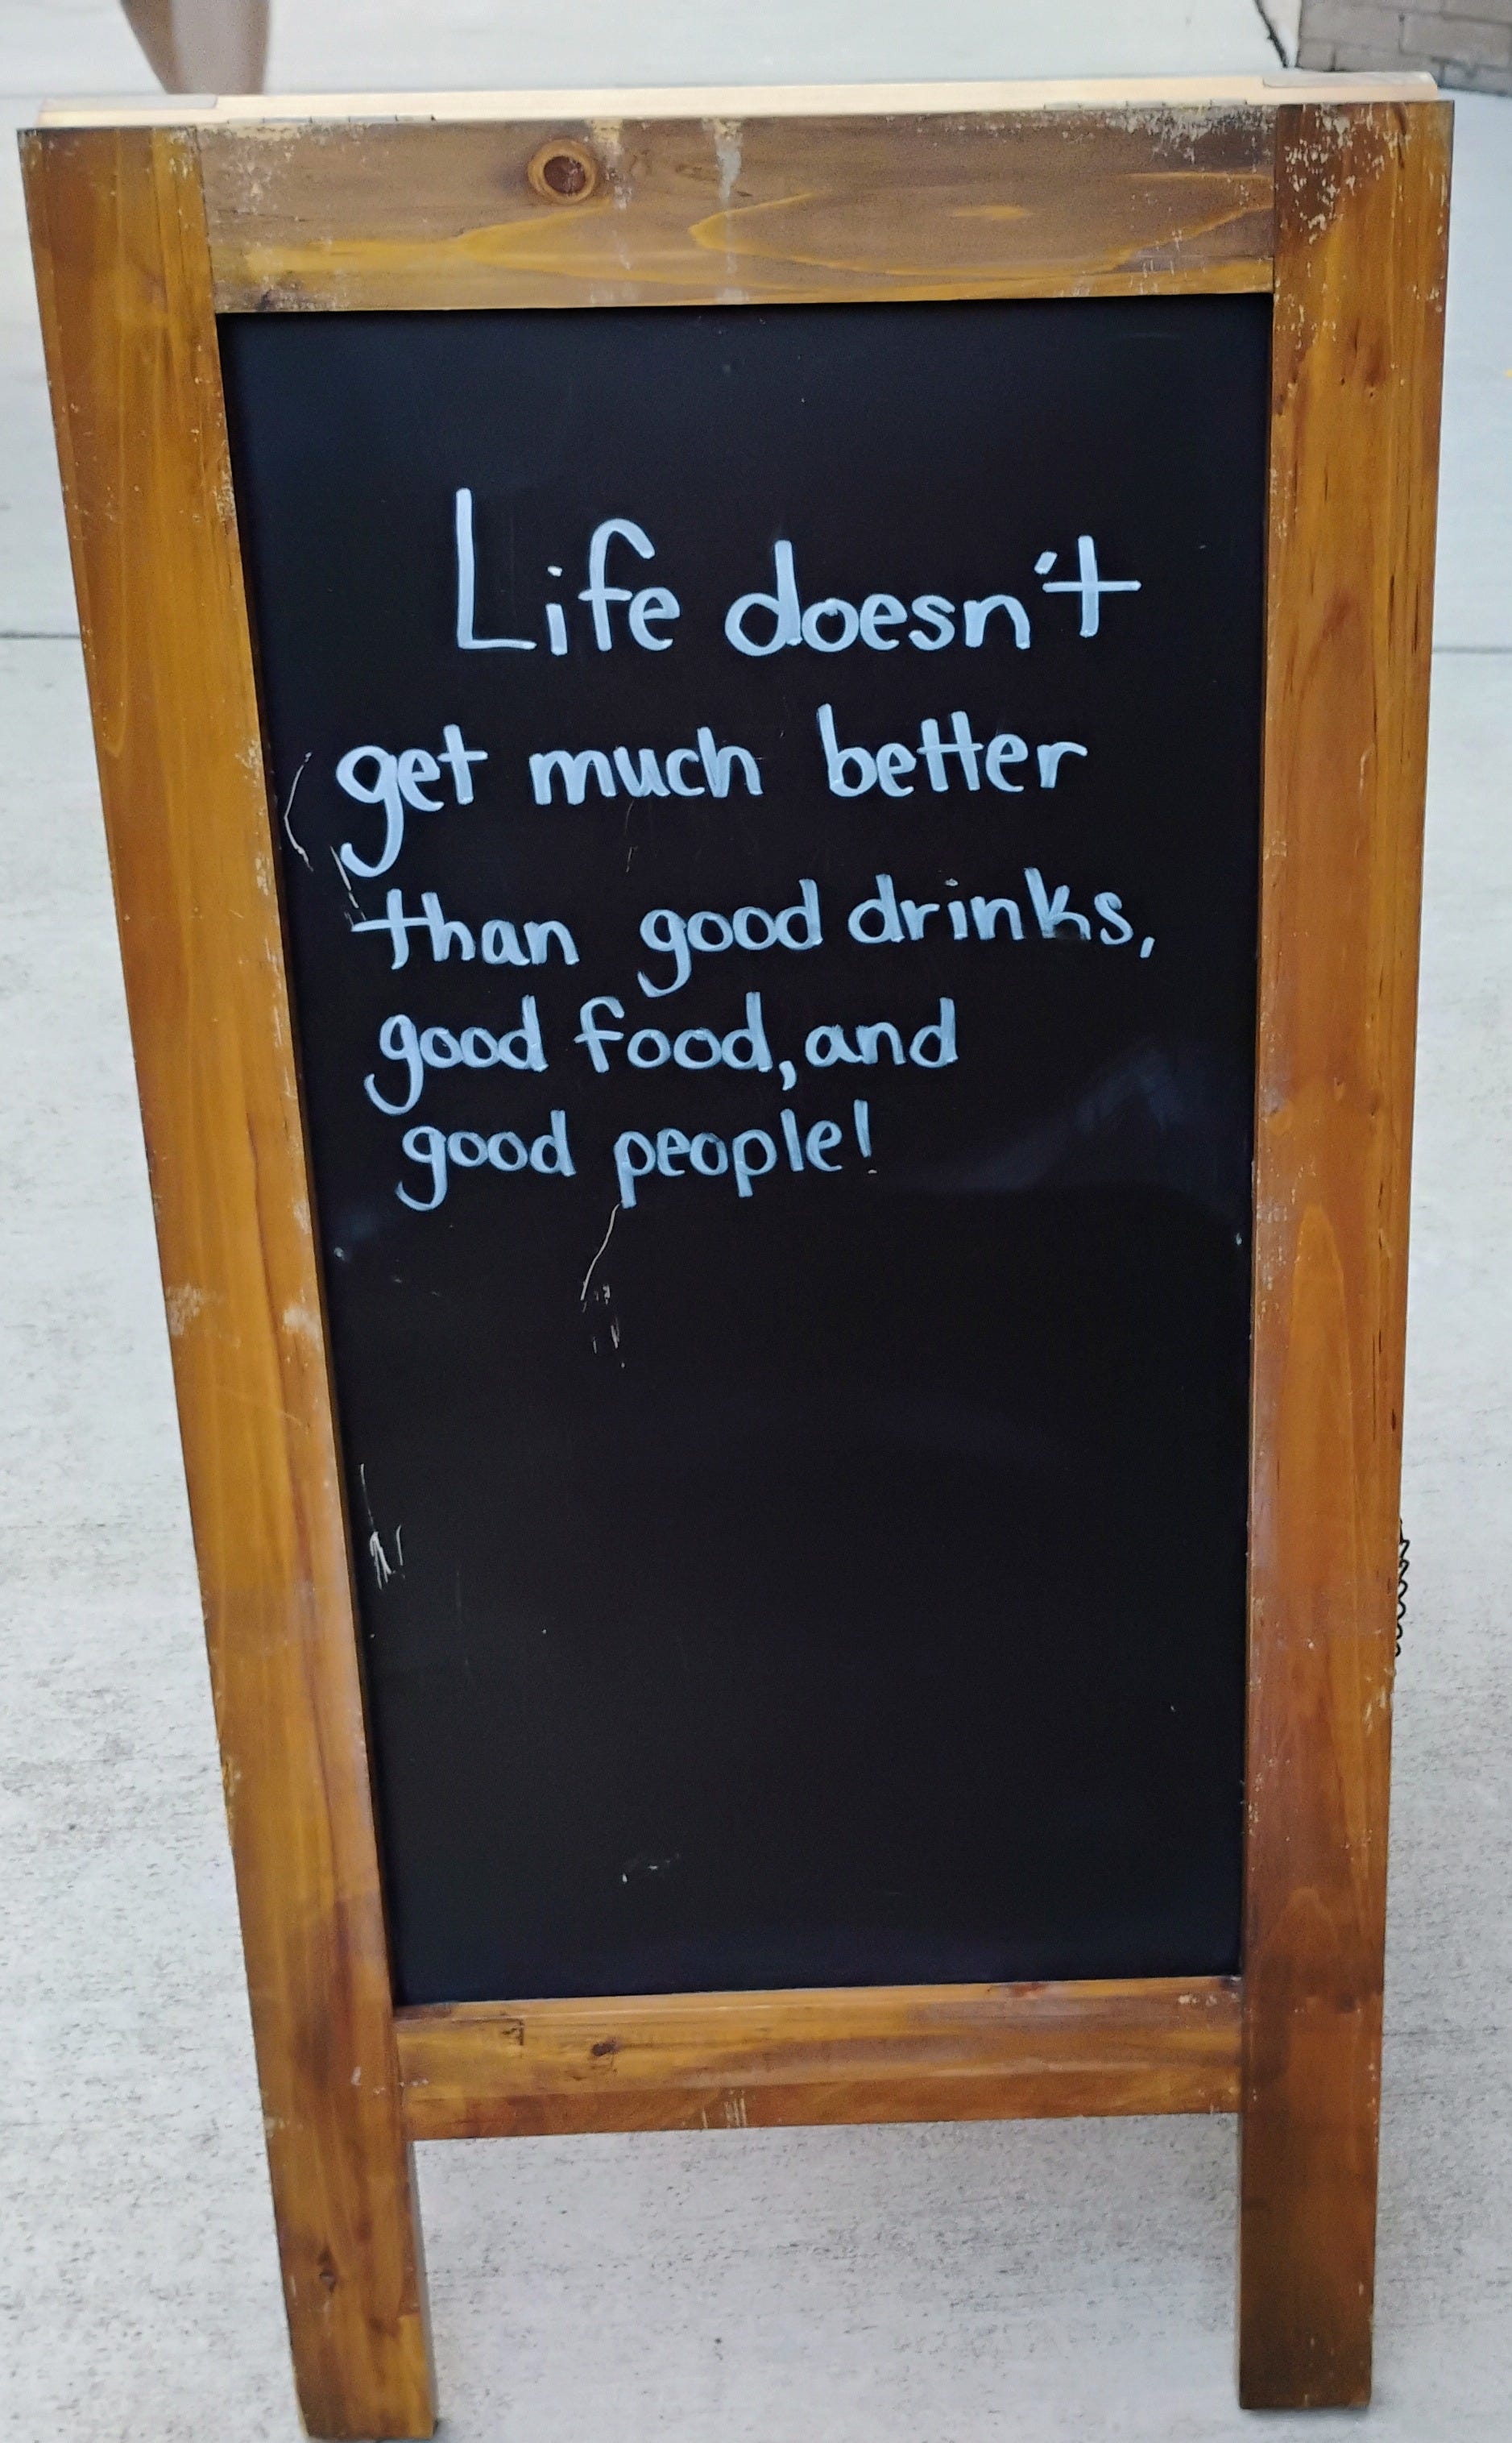 Life doesn't
get much better
than good drinks,
good food, and
good people!